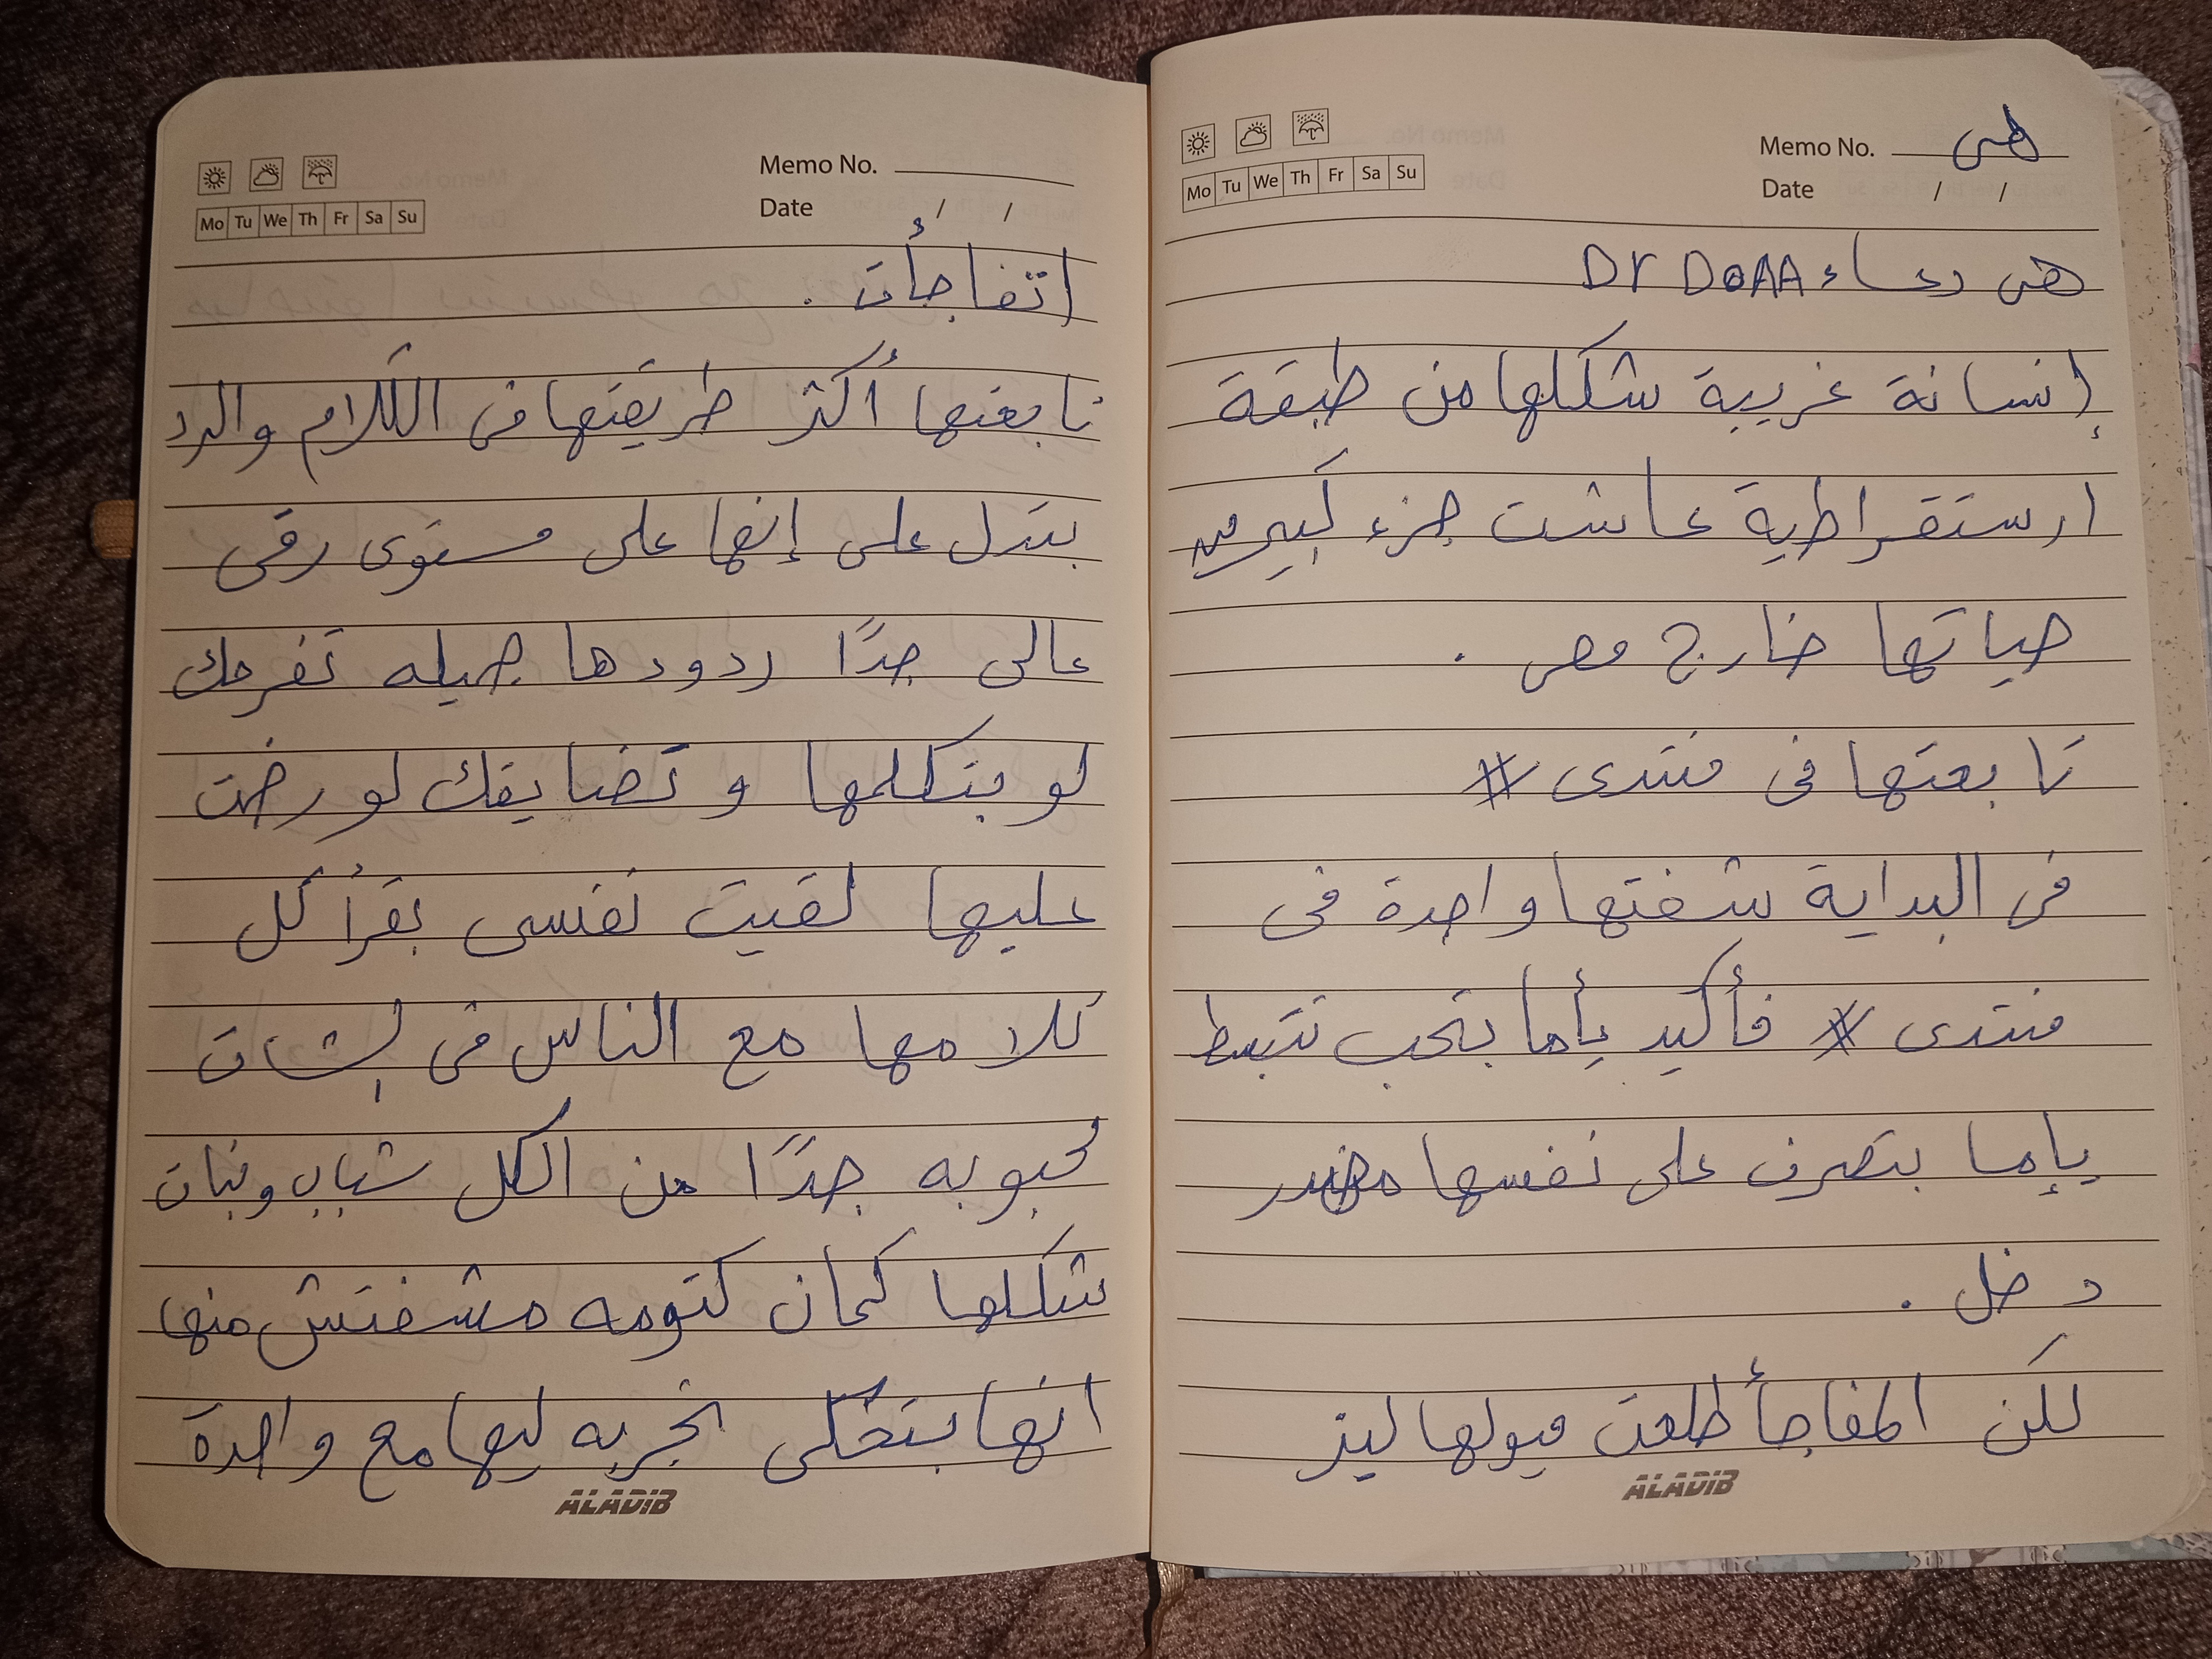 Memo No. هى
Date / /
Mo Tu We Th Fr Sa Su
هى دعاء Dr DoAA
إنسانة غريبة شكلها من طبقة
ارستقراطية عاشت جزء كبير من
حياتها خارج مصر .
تابعتها فى منتدى #
فى البداية شفتها واحدة فى
منتدى # فأكيد يأما بتحب تتبسط
يإما بتصرف على نفسها مصدر
دخل .
لكن المفاجأ طلعت ميولها ليز
ALADIB
Memo No.
Date / /
Mo Tu We Th Fr Sa Su
اتفاجأت .
تابعتها أكثر طريقتها فى الكلام والرد
بتدل على إنها على مستوى رقى
عالى جدًا ردودها جميله تفرحك
لو بتكلمها و تضايقك لو رخمت
عليها لقيت نفسى بقرأ كل
كلامها مع الناس فى الشات
محبوبه جدًا من الكل شباب وبنات
شكلها كمان كتومه مشفتش منها
انها بتحكى تجربه ليها مع واحدة
ALADIB